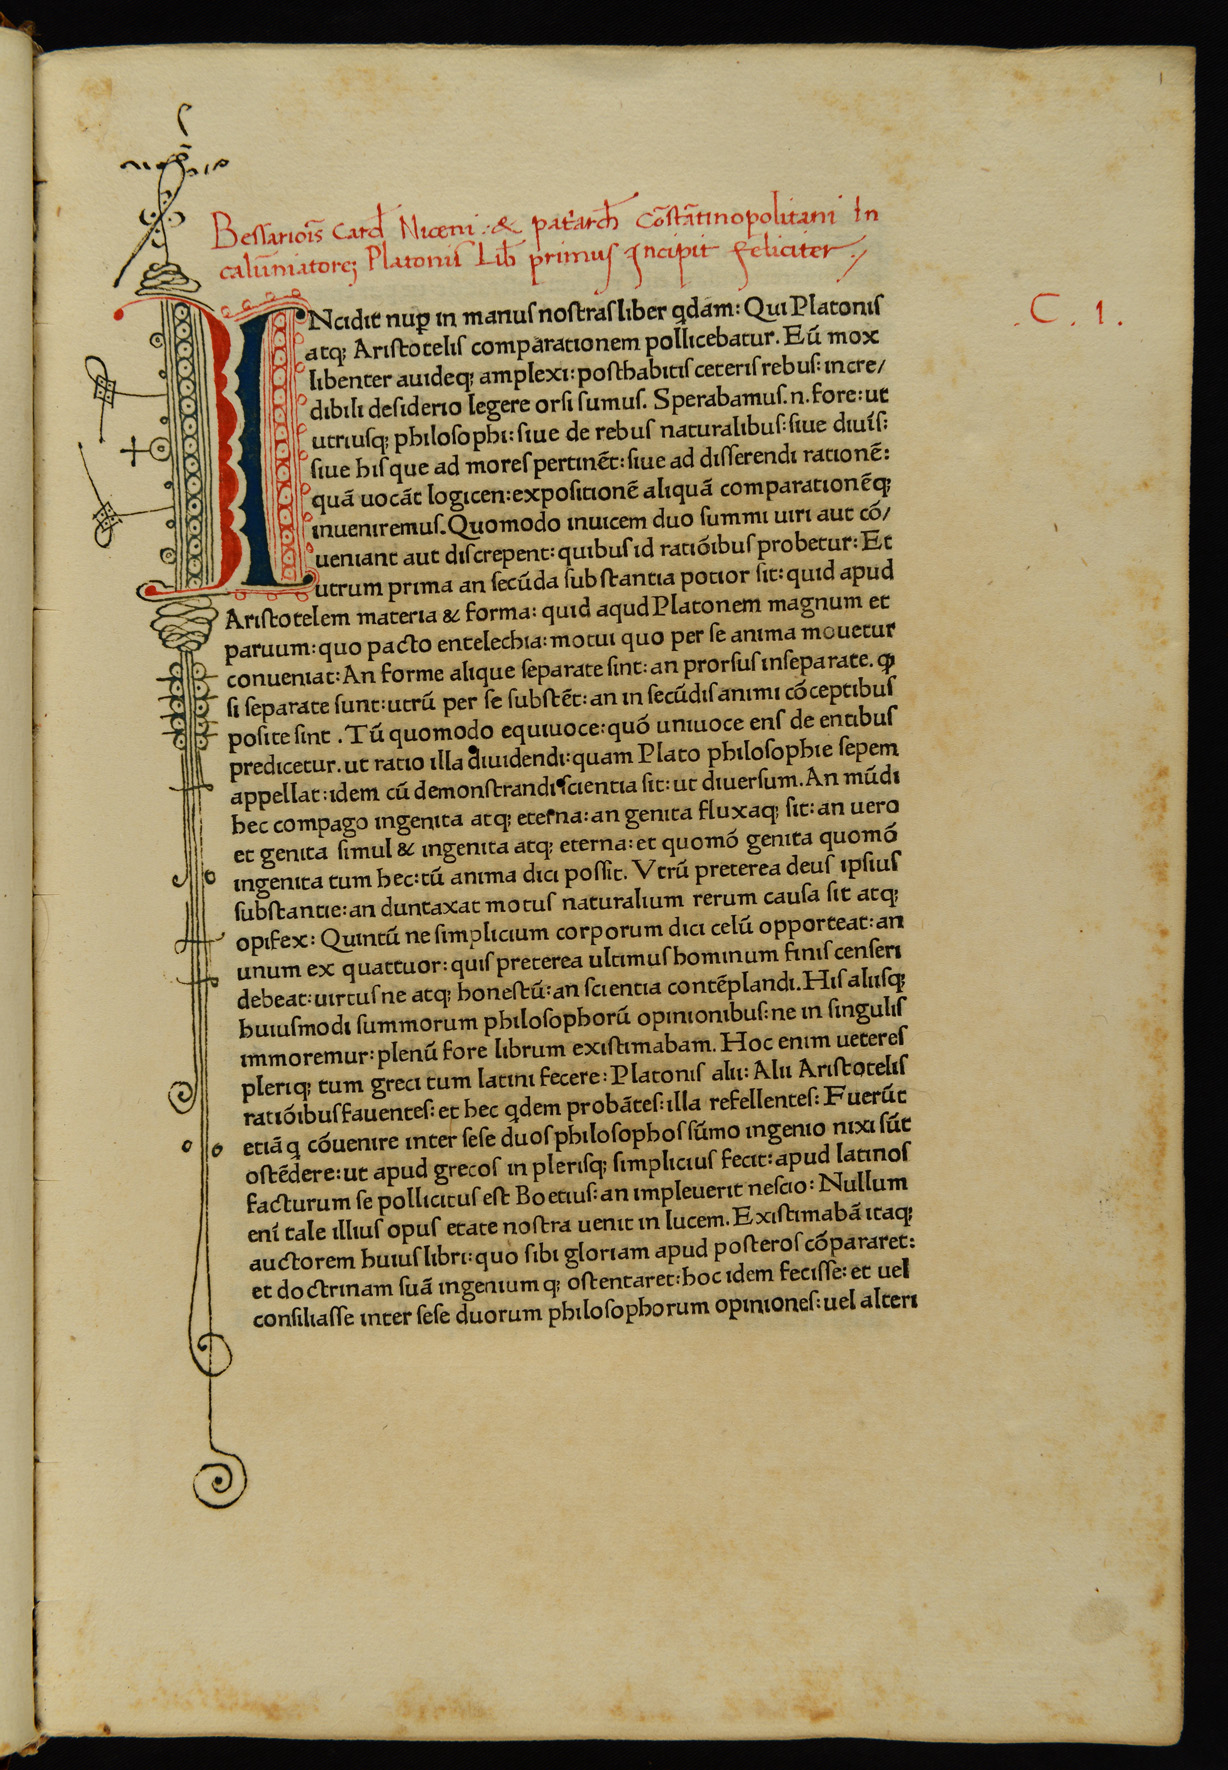 1
Bessariōis Card̄ Niceni . & pat̄arch̄ Cōstātinopolitani In
calūniatorēꝫ Platonis Lib̄ primus Incipit feliciter ./
C . 1 .
INcidit nup̱ in manus nostras liber q̄dam: Qui Platonis
atqꝫ Aristotelis comparationem pollicebatur. Eū mox
libenter auideqꝫ amplexi: posthabitis ceteris rebus: incre/
dibili desiderio legere orsi sumus. Sperabamus. n. fore: ut
utriusqꝫ philosophi: siue de rebus naturalibus: siue diuīs:
siue his que ad mores pertinēt: siue ad disserendi rationē:
quā uocāt logicen: expositionē aliquā comparationēqꝫ
inueniremus. Quomodo inuicem duo summi uiri aut cō/
ueniant aut discrepent: quibus id ratiōibus probetur: Et
utrum prima an secūda substantia potior sit: quid apud
Aristotelem materia & forma: quid aqud Platonem magnum et
paruum: quo pacto entelechia: motui quo per se anima mouetur
conueniat: An forme alique separate sint: an prorsus inseparate. ꝙ
si separate sunt: utrū per se substēt: an in secūdis animi cōceptibus
posite sint . Tū quomodo equiuoce: quō uniuoce ens de entibus
predicetur. ut ratio illa diuidendi: quam Plato philosophie sepem
appellat: idem cū demonstrandi scientia sit: ut diuersum. An mūdi
hec compago ingenita atqꝫ eterna: an genita fluxaqꝫ sit: an uero
et genita simul & ingenita atqꝫ eterna: et quomō genita quomō
ingenita tum hec: tū anima dici possit. Vtrū preterea deus ipsius
substantie: an duntaxat motus naturalium rerum causa sit atqꝫ
opifex: Quintū ne simplicium corporum dici celū opporteat: an
unum ex quattuor: quis preterea ultimus hominum finis censeri
debeat: uirtus ne atqꝫ honestū: an scientia contēplandi. His aliisqꝫ
huiusmodi summorum philosophorū opinionibus: ne in singulis
immoremur: plenū fore librum existimabam. Hoc enim ueteres
pleriqꝫ tum greci tum latini fecere: Platonis alii: Alii Aristotelis
ratiōibus fauentes: et hec q̄dem probātes: illa refellentes: Fuerūt
etiā q̄ cōuenire inter sese duos philosophos sūmo ingenio nixi sūt
ostēdere: ut apud grecos in plerisqꝫ simplicius fecit: apud latinos
facturum se pollicitus est Boetius: an impleuerit nescio: Nullum
enī tale illius opus etate nostra uenit in lucem. Existimabā itaqꝫ
auctorem huius libri: quo sibi gloriam apud posteros cōpararet:
et doctrinam suā ingenium qꝫ ostentaret: hoc idem fecisse: et uel
consiliasse inter sese duorum philosophorum opiniones: uel alteri